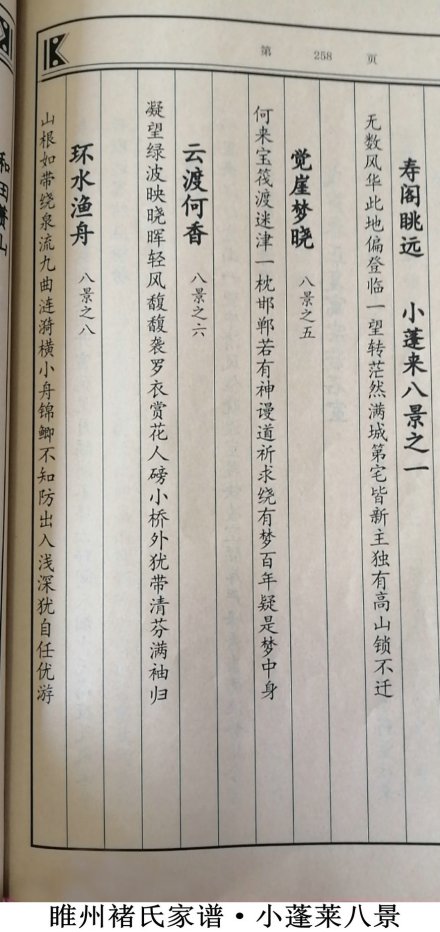 第 258 页
寿阁眺远 小蓬来八景之一
无数风华此地偏登临一望转茫然满城第宅皆新主独有高山锁不迁
觉崖梦晓 八景之五
何来宝筏渡迷津一枕邯郸若有神谩道祈求绕有梦百年疑是梦中身
云渡何香 八景之六
凝望绿波映晓晖轻风馥馥袭罗衣赏花人磅小桥外犹带清芬满袖归
环水渔舟 八景之八
山根如带绕泉流九曲涟漪横小舟锦鲫不知防出入浅深犹自任优游
睢州褚氏家谱·小蓬莱八景